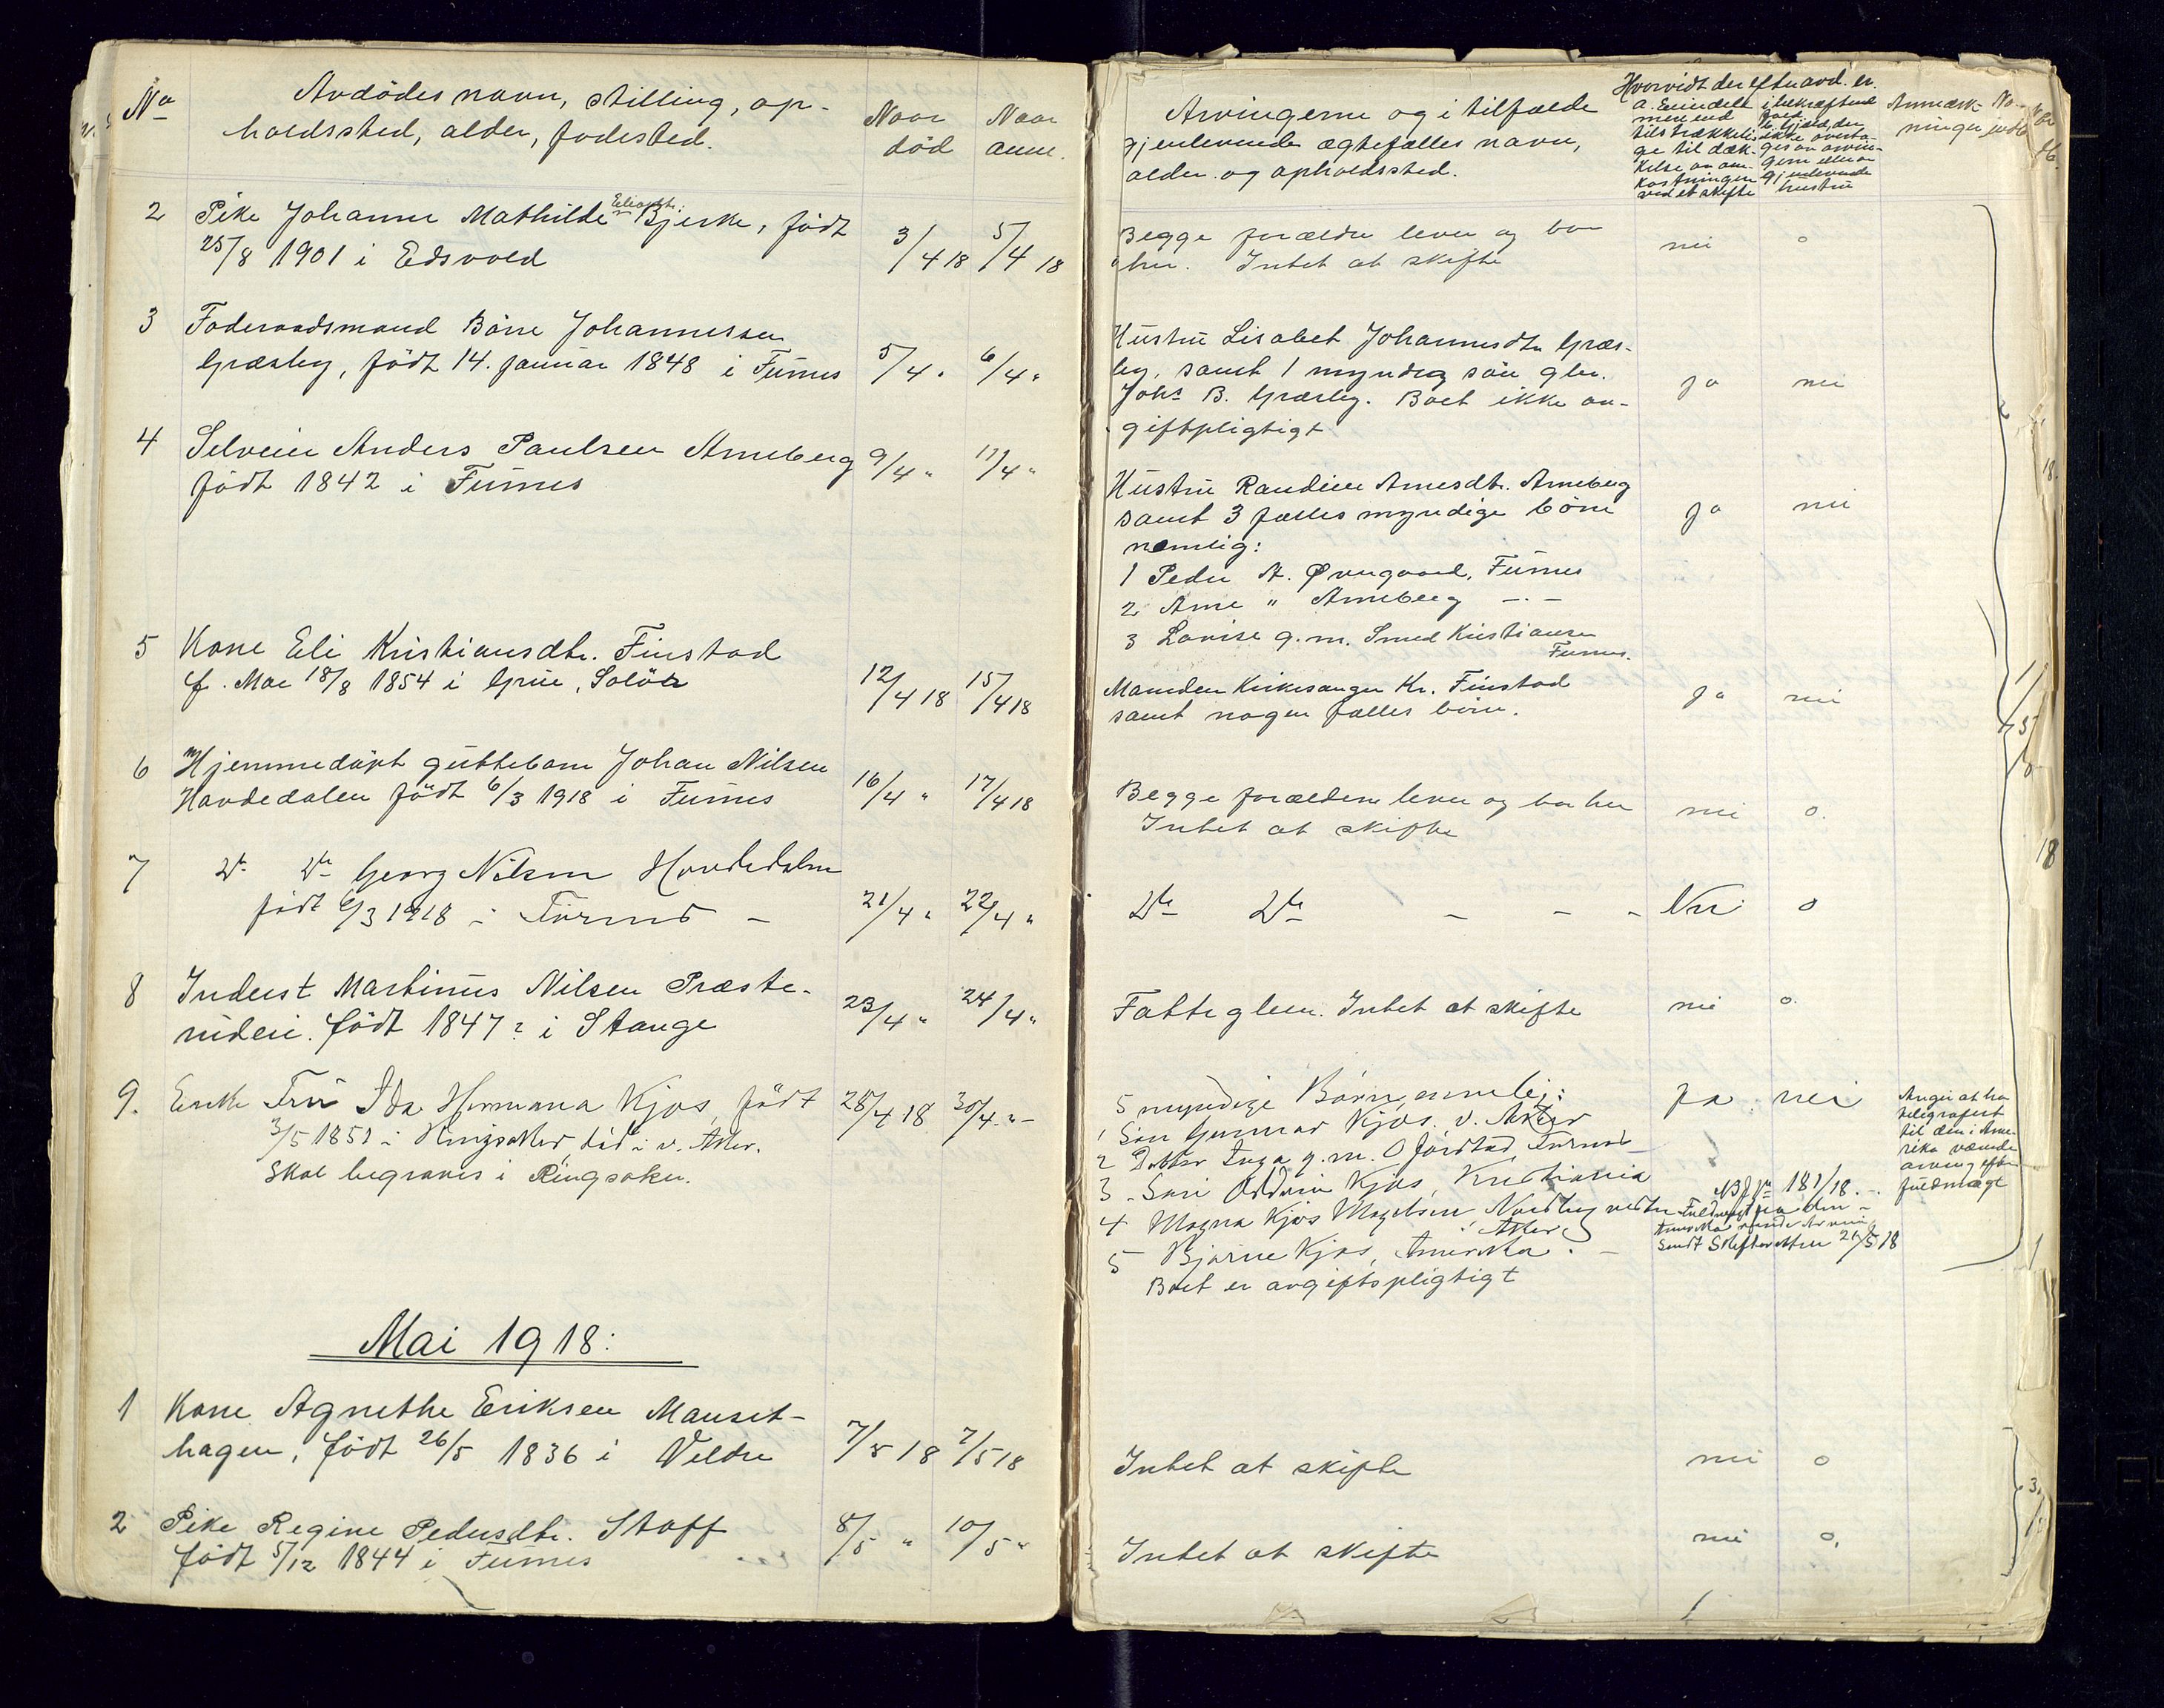 No
Avdödes navn, stilling, op-
holdssted, alder, fødested.
Naar
død
Naar
anm.
2 Pike Johanne Mathilde Bjerke, födt
25/8 1901 i Edsvold
3/4 18 5/4 18
3 Foderaadsmand Börre Johannessen
Græsby, födt 14. januar 1848 i Furnes
5/4 " 6/4 "
4 Selveier Anders Paulsen Arneberg
födt 1842 i Furnes
9/4 " 11/4 "
5 Kone Eli Kristiansdtr. Finstad
f. Moe 18/8 1854 i Grue, Solör
12/4 18 15/4 18
6 Hjemmedöpt guttebarn Johan Nilsen
Hovdedalen födt 6/3 1918 i Furnes
16/4 " 17/4 18
7 Do Do Georg Nilsen Hovdedalen
født 6/3 1918 i Furnes -
21/4 " 22/4 "
8 Inderst Martinus Nilsen Præste-
rudeie. födt 1847? i Stange
23/4 " 24/4 "
9. Enke Fru Ida Hermana Kjos, födt
3/5 1851 i Ringsaker, död i v. Aker.
Skal begraves i Ringsaker.
28/4 18 30/4 -"-
Mai 1918:
1 Kone Agnethe Eriksen Mauset-
hagen, födt 26/5 1836 i Veldre
7/5 18 7/5 18
2 Pike Regine Pedersdtr. Staff
födt 5/12 1844 i Furnes
8/5 " 10/5 "
Arvingerne og i tilfælde
gjenlevende ægtefælles navn,
alder og opholdssted.
Hvorvidt der efter avd. er.
a. Eiendele
mere end
tilstrækkeli-
ge til dæk-
kelse av om-
kostningen
ved et skifte
i bekræftende
fald
b. gjæld, der
ikke overta-
ges av arvin-
gerne eller av
gjenlevende
hustru
Anmærk-
ninger
Begge forældre lever og bor
her. Intet at skifte
nei o
Hustru Lisabet Johannesdtr Græs-
by, samt 1 myndig sön gbr.
Johs B. Græsby. Boet ikke av-
giftspligtigt
ja nei
Hustru Randine Arnesdtr. Arneberg
samt 3 fælles myndige börn
nemlig:
ja nei
1 Peder A. Øvergaard, Furnes
2 Arne " Arneberg -.-
3 Lovise g.m. Smed Kristiansen
Furnes.
Manden Kirkesanger Kr. Finstad
samt nogen fælles börn.
ja nei
Begge forældrene lever og bor her
Intet at skifte
nei o.
Do Do - - - Nei o
Fattiglem. Intet at skifte nei o.
5 myndige Børn, nemlig:
ja nei
1 Søn Gunnar Kjos, v. Aker
2 Datter Inga g.m. O Jordstad, Furnes
3 - Søn Oddvin Kjos, Kristiania
4 Magna Kjos Magelsen, Nordby vestre
Aker
5 Bjarne Kjos, Amerika. -
Boet er avgiftspligtigt
Angir at ha
telegrafert
til den i Ame-
rika værende
arving efter
fuldmagt
NB J No 181/18.-
Fuldmagt fra den i
Amerika værende Arving
sendt Skifteretten 21/5 18
Intet at skifte nei o
Intet at skifte nei o.